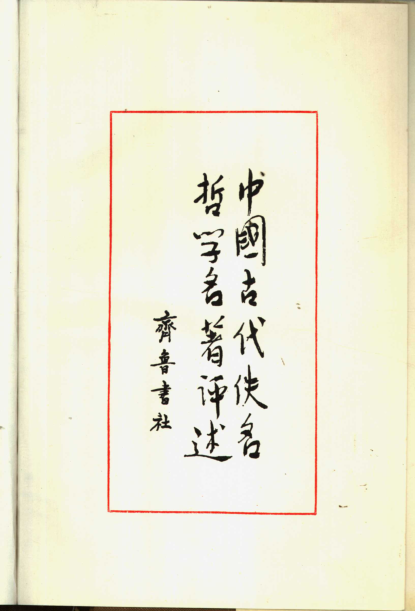 中國古代佚名
哲学名著评述
齊魯書社